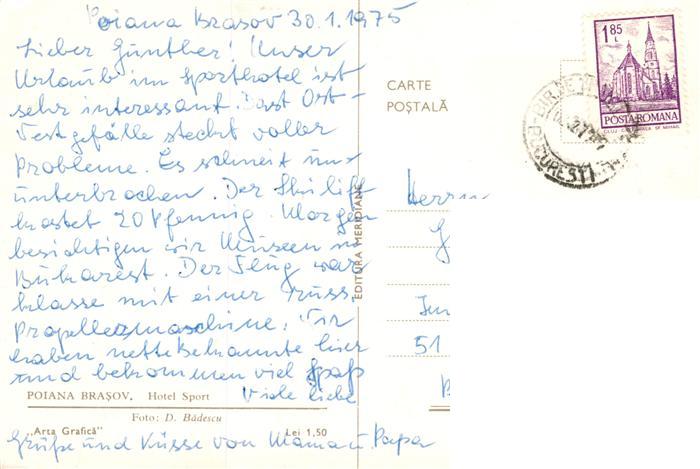 Poiana Brasov 30.1.1975
Lieber Günther! Unser
Urlaub im Sporthotel ist
sehr interessant. Das Ost-
Westgefälle steckt voller
Probleme. Es schneit nur
unterbrochen. Der Skilift
kostet 20 Pfennig. Morgen
besichtigen wir Museen in
Bukarest. Der Flug war
klasse mit einer russ.
Propellermaschine. Wir
haben nette Bekannte hier
und bekommen viel Spaß
Viele liebe
Grüße und Küsse von Mama u. Papa
POIANA BRAȘOV, Hotel Sport
Foto: D. Bădescu
„Arta Grafică” Lei 1,50
EDITURA MERIDIANE
CARTE
POȘTALĂ
1,85 L
POSTA ROMANA
CLUJ - CATEDRALA SF. MIHAIL
BUCUREȘTI
Herrn
G
51